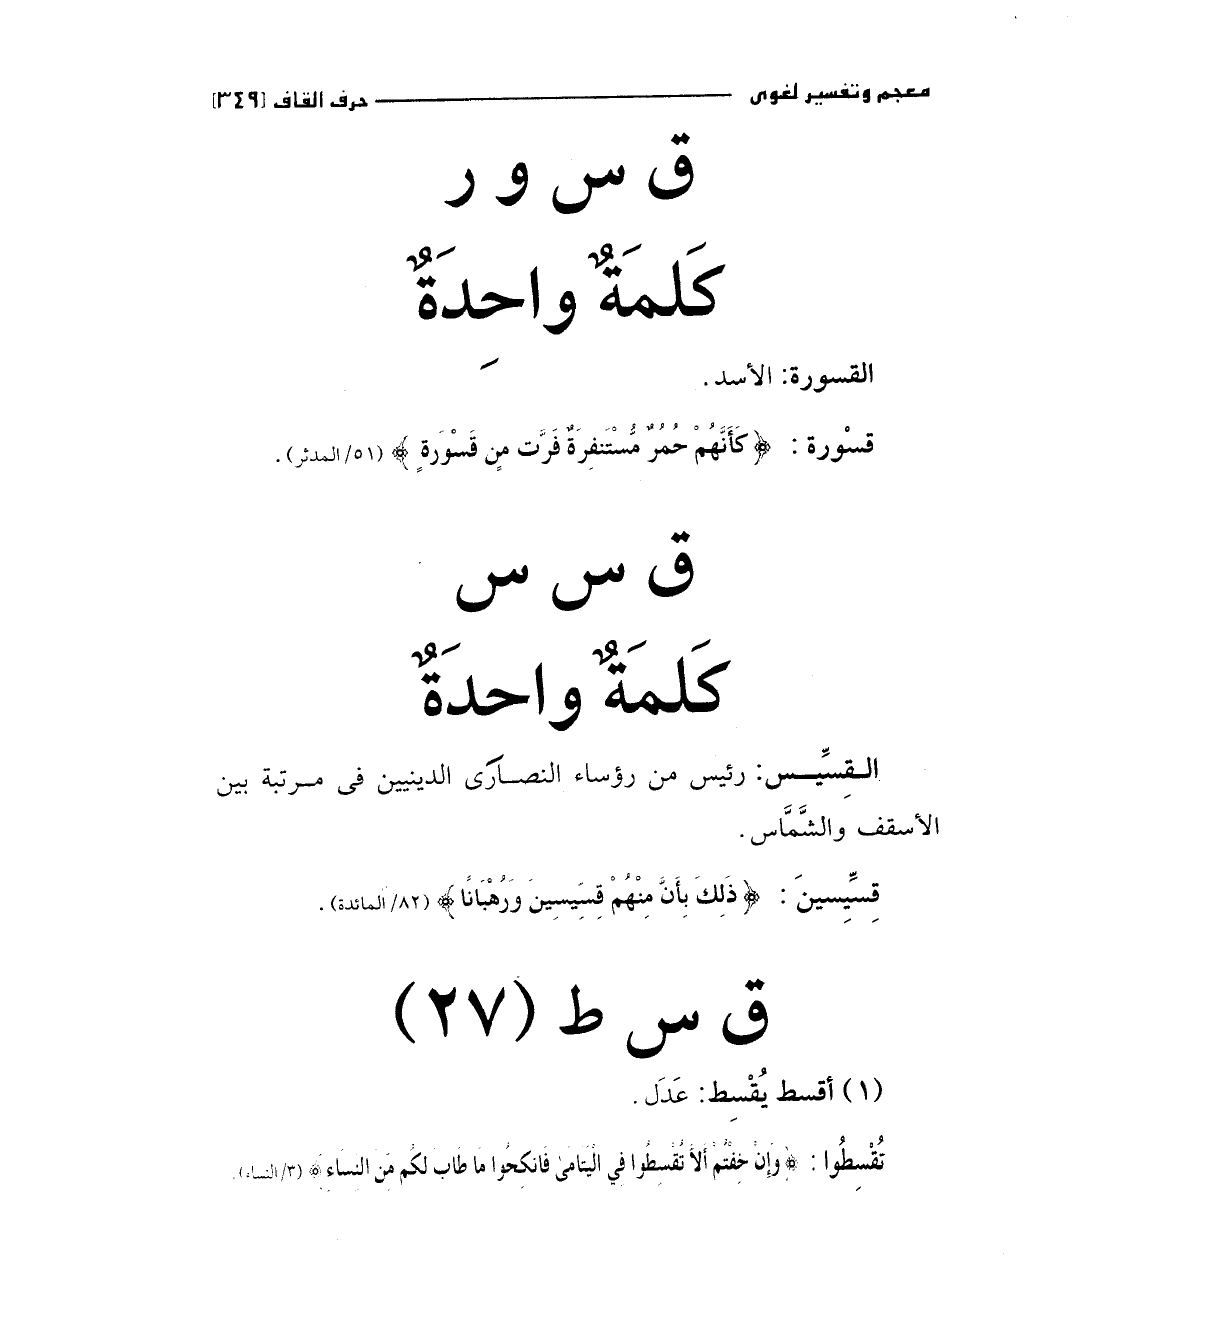 معجم وتفسير لغوى حرف القاف [٣٤٩]
ق س و ر
كَلمَةٌ واحِدَةٌ
القسورة: الأسد.
قسْورة : ﴿ كَأَنَّهُمْ حُمُرٌ مُّسْتَنفِرَةٌ فَرَّت مِن قَسْوَرَةٍ ﴾ (٥١/ المدثر).
ق س س
كَلمَةٌ واحدَةٌ
القِسِّيس: رئيس من رؤساء النصارَى الدينيين فى مرتبة بين
الأسقف والشَّمَّاس.
قِسِّيِسِينَ : ﴿ ذَلِكَ بِأَنَّ مِنْهُمْ قِسِّيسِينَ وَرُهْبَانًا ﴾ (٨٢/ المائدة).
ق س ط (٢٧)
(١) أقسط يُقْسِط: عَدَل.
تُقْسِطُوا : ﴿ وَإِنْ خِفْتُمْ أَلاَّ تُقْسِطُوا فِي الْيَتَامَىٰ فَانكِحُوا مَا طَابَ لَكُم مِّنَ النِّسَاءِ ﴾ (٣/ النساء).